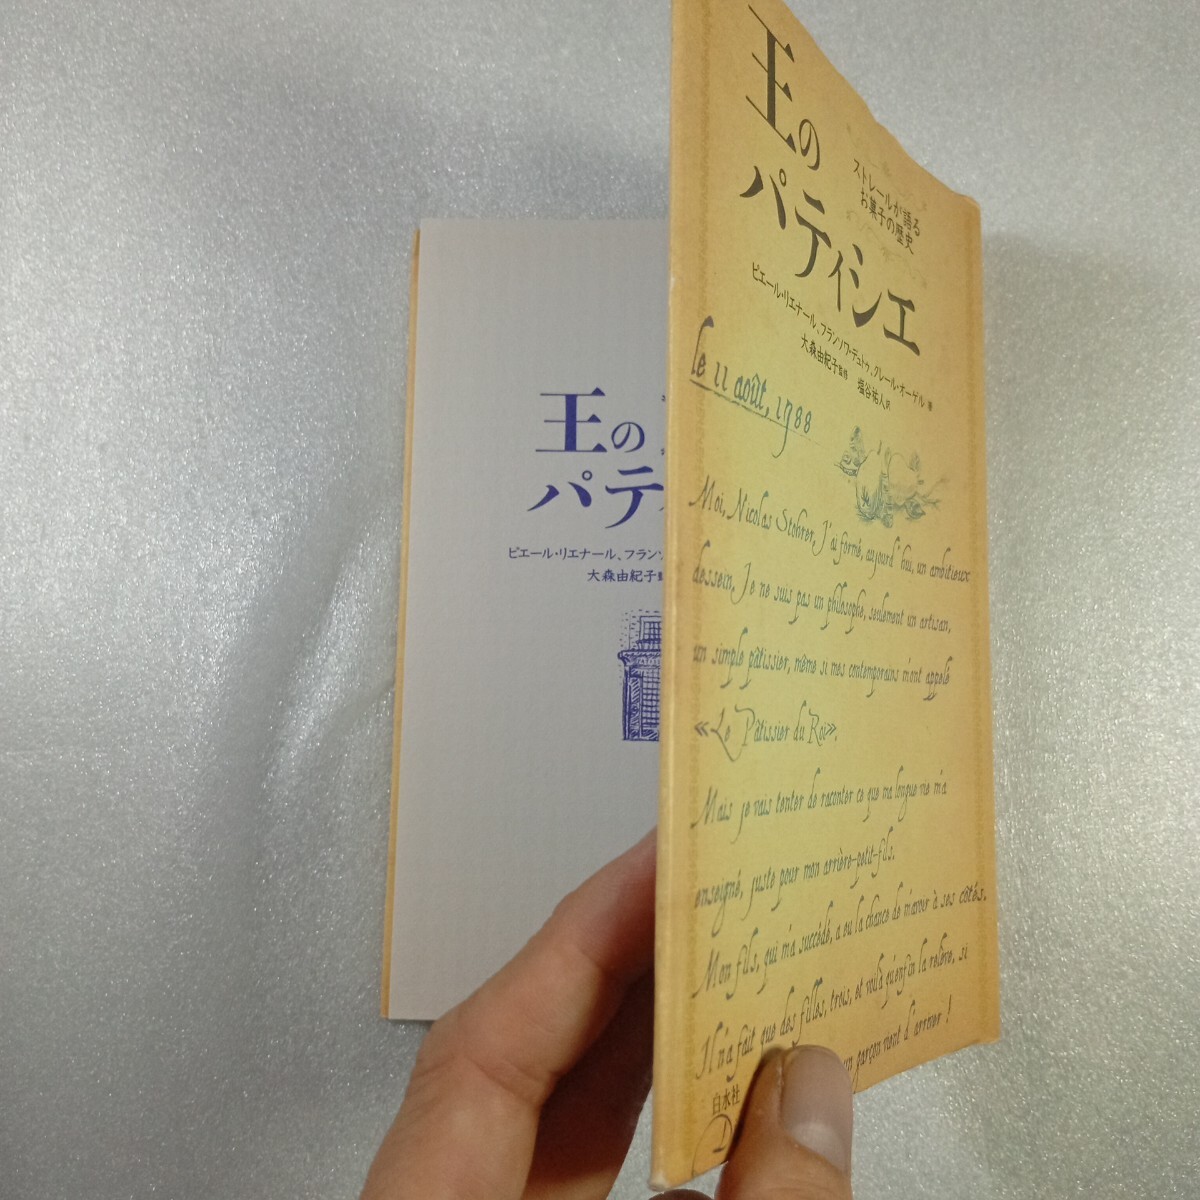 王の
パティシエ
ストレールが語る
お菓子の歴史
ピエール・リエナール、フランソワ・デュトゥ、クレール・オーゲル 著
大森由紀子 監修 塩谷祐人 訳
le 11 août, 1788
Moi, Nicolas Stohrer, J'ai formé, aujourd'hui, un ambitieux
dessein, Je ne suis pas un philosophe, seulement un artisan,
un simple pâtissier, même si mes contemporains m'ont appelé
«Le Pâtissier du Roi».
Mais je vais tenter de raconter ce que ma longue vie m'a
enseigné, juste pour mon arrière-petit-fils.
Mon fils, qui m'a succédé, a eu la chance de m'avoir à ses côtés.
Il n'a fait que des filles, trois, et voilà qu'enfin la relève, si
un garçon vient d'arriver !
白水社
王の
パテ
ピエール・リエナール、フラン
大森由紀子